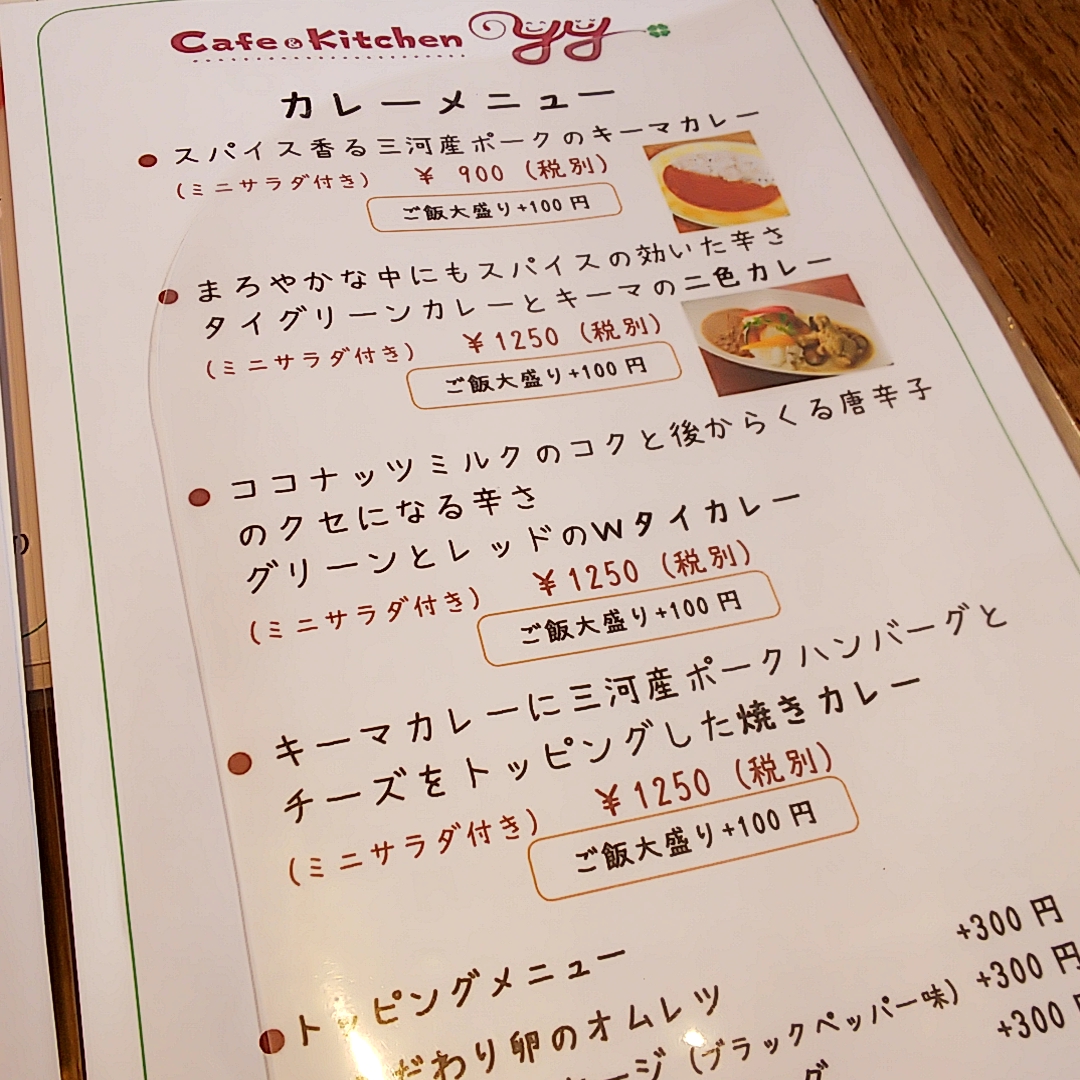 Cafe & Kitchen yy
カレーメニュー
● スパイス香る三河産ポークのキーマカレー
(ミニサラダ付き) ¥ 900 (税別)
ご飯大盛り+100 円
● まろやかな中にもスパイスの効いた辛さ
タイグリーンカレーとキーマの二色カレー
(ミニサラダ付き) ¥1250 (税別)
ご飯大盛り+100 円
● ココナッツミルクのコクと後からくる唐辛子
のクセになる辛さ
グリーンとレッドのWタイカレー
(ミニサラダ付き) ¥1250 (税別)
ご飯大盛り+100 円
● キーマカレーに三河産ポークハンバーグと
チーズをトッピングした焼きカレー
(ミニサラダ付き) ¥1250 (税別)
ご飯大盛り+100 円
● トッピングメニュー
だわり卵のオムレツ +300 円
ージ (ブラックペッパー味) +300 円
グ +300